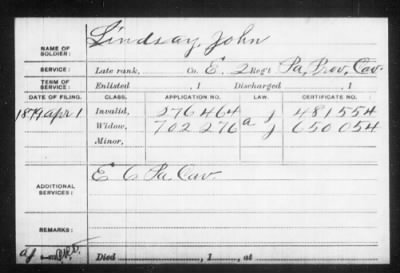 Lindsay, John
NAME OF SOLDIER:
SERVICE: Late rank, Co. E, 2 Reg't Pa. Prov. Cav.
TERM OF SERVICE: Enlisted , 1 Discharged , 1
DATE OF FILING. CLASS. APPLICATION NO. LAW. CERTIFICATE NO.
1879 Apr 1 Invalid, 276464 J 481554
Widow, 702276 a. J 650054
Minor,
E 6 Pa. Cav.
ADDITIONAL SERVICES:
REMARKS:
Died , 1 , at